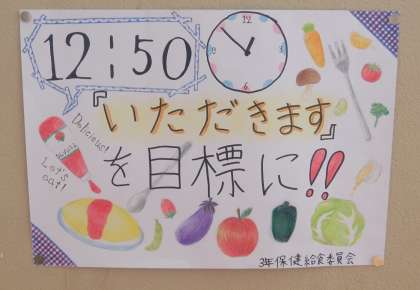 12:50
『いただきます』
を目標に!!
Delicious!
Let's eat!
3年保健給食委員会